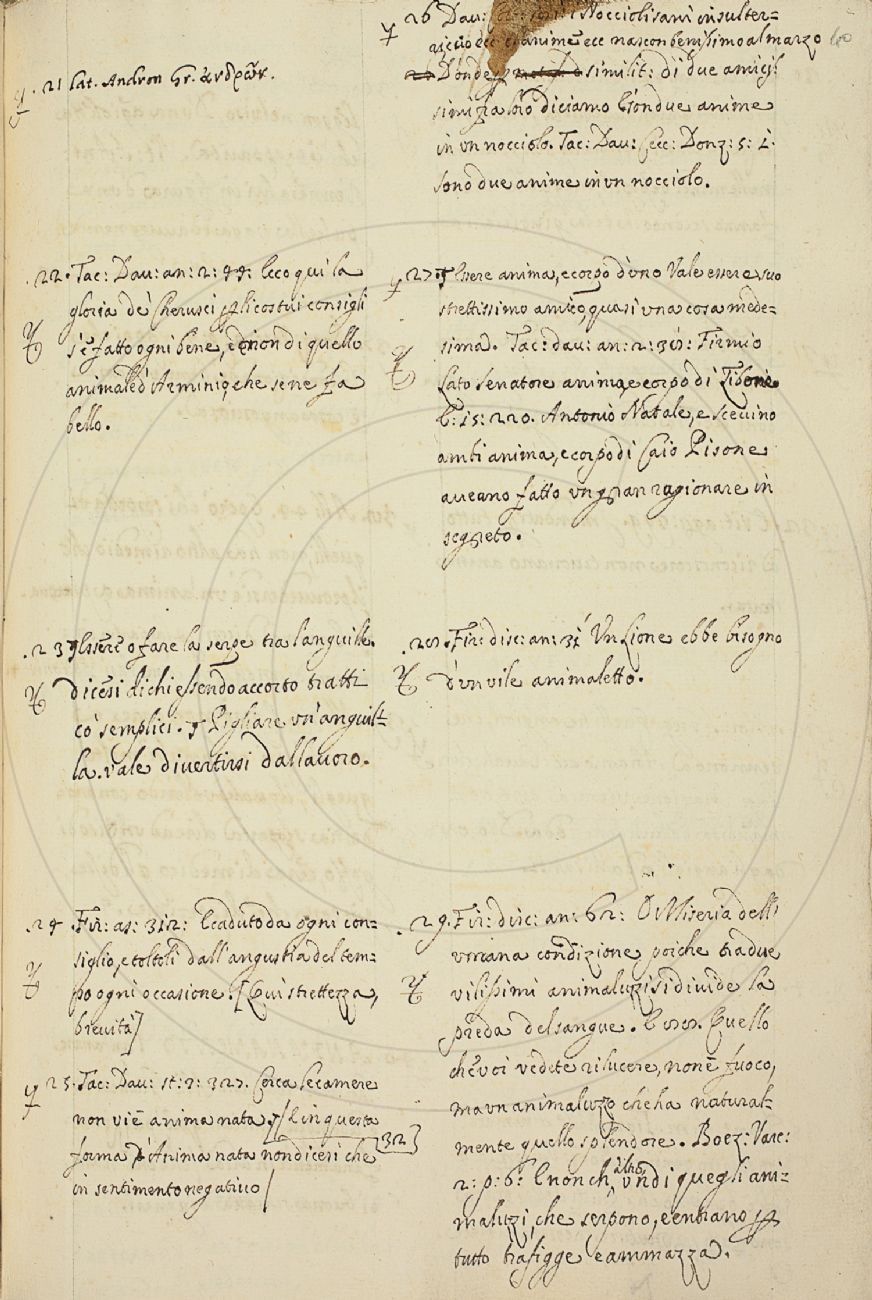 21 Lat. Andron Gr. ἀνδρών.
22. Tac: Dav: an: 2: 44: Ecco qui la
gloria de' Cherusci
s'è fatto ogni bene, e non di quello
animale d'Arminio, che se ne fa
bello.
23 Essere o fare la serpe tra l'anguille.
dicesi di chi essendo accorto tratti
co' semplici. Pigliare un'anguil=
la. vale divertirsi dal lavoro.
24 Fir: as: 312: E caduto da ogni con=
siglio, e toltoli dall'angustia del tem=
po ogni occasione. [Qui strettezza,
brevità]
25. Tac: Dav: st: 3: 327. Cerca le camere
non vi è anima nata. / E in questa
forma d'Anima nata non dicesi che [32]
in sentimento negativo /
26 Dav: Noccioli sani in sulter=
anime ecc nascon benissimo al marzo
Donde similit: di due amicis=
simi fra loro diciamo E' son due anime
in un nocciolo. Tac: Dav: Donz: 5: 1.
sono due anime in un nocciolo.
27. Essere anima, e corpo d'uno Vale essere suo
strettissimo amico, quasi una cosa mede=
sima. Tac: dav: an: 2: Firmio
Cato senatore anima, e corpo di Libone
E: 15: 220. Antonio Natale, e Scevino
ambi anima, e corpo di Caio Pisone
aveano fatto un gran ragionare in
segreto.
28. Fir: disc: an: 31 Un Lione ebbe bisogno
d'un vile animaletto.
29. Fir: disc: an: 62: O Miseria dell'
umana condizione, poiche tra due
vilissimi animaluzzi si divide la
preda del sangue. E Quello
che voi vedete rilucere, non è fuoco,
ma un animaluzzo che ha natural=
mente quello splendore. Boez: Varc:
2: p: 6: E non ch'altro, un di quegli ani=
maluzzi, che serpono, e entrano per
tutto trafigge e ammazza.